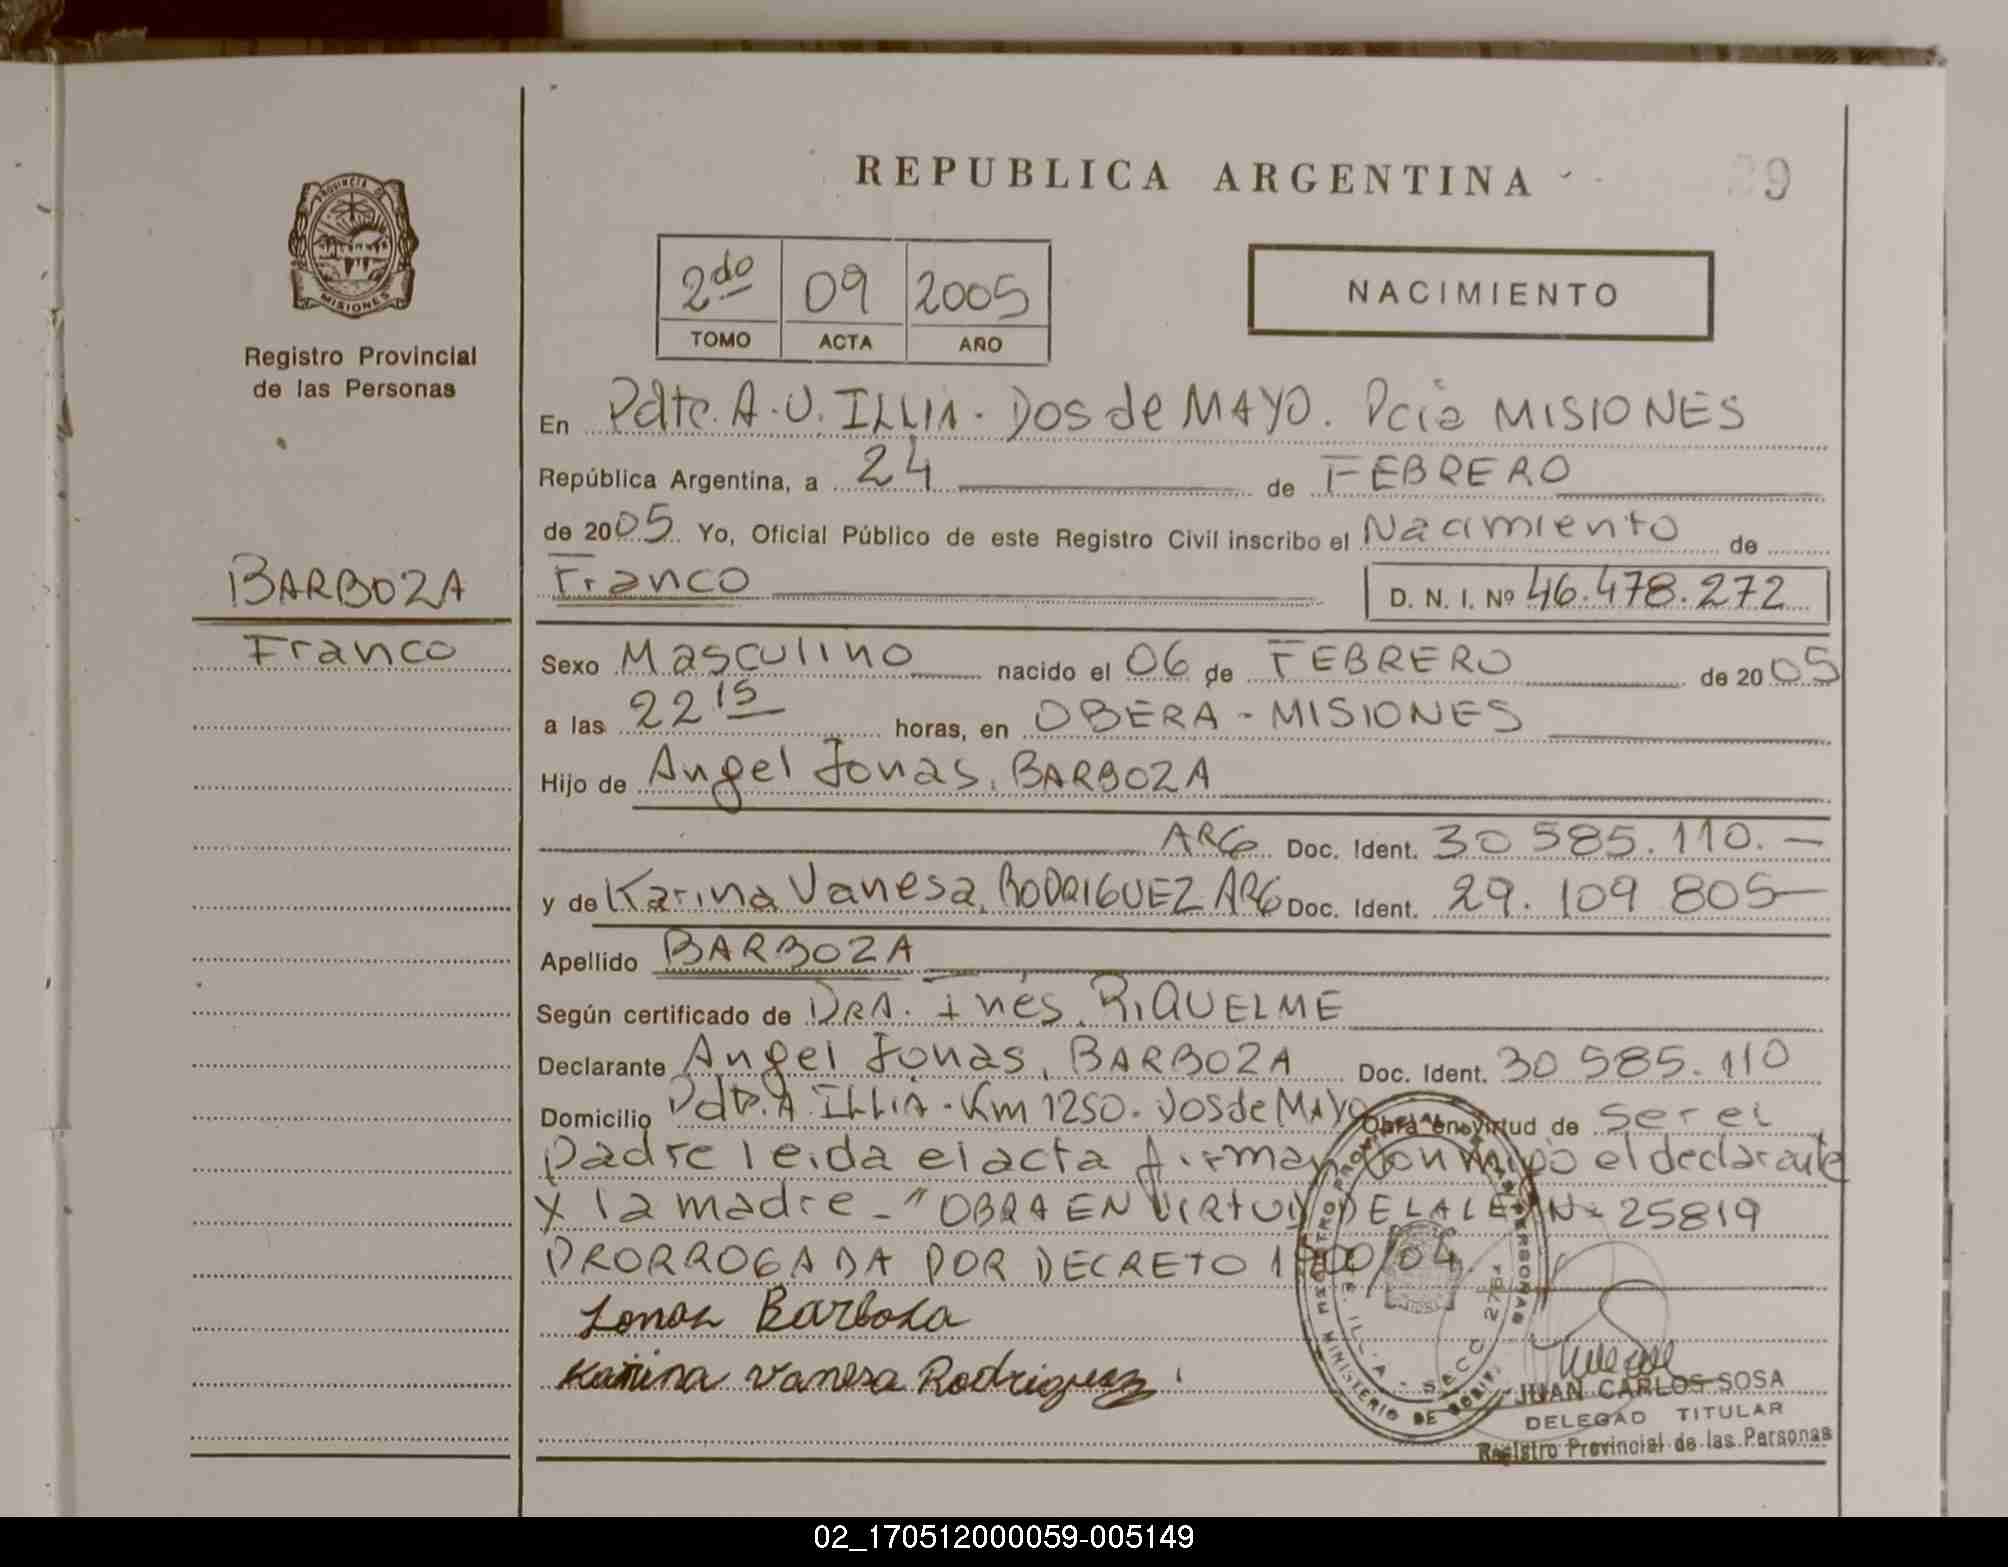 REPUBLICA ARGENTINA
9
PROVINCIA DE
MISIONES
Registro Provincial
de las Personas
2do 09 2005
TOMO ACTA AÑO
NACIMIENTO
En Pdte. A. U. ILLIA - DOS de MAYO. Pcia MISIONES
República Argentina, a 24 de FEBRERO
de 2005 Yo, Oficial Público de este Registro Civil inscribo el Nacimiento de
Franco D. N. I. Nº 46.478.272
BARBOZA
Franco
Sexo Masculino nacido el 06 de FEBRERO de 2005
a las 22 15 horas, en OBERA - MISIONES
Hijo de Angel Jonas, BARBOZA
ARG Doc. Ident. 30 585.110.—
y de Karina Vanesa, RODRIGUEZ ARG Doc. Ident. 29.109 805—
Apellido BARBOZA
Según certificado de DRA. Inés, RIQUELME
Declarante Angel Jonas, BARBOZA Doc. Ident. 30 585.110
Domicilio Pdte. A. ILLIA - Km 1250 - Dos de MAYO Obra en virtud de ser el
padre leida el acta firman conmigo el declarante
y la madre - "OBRA EN VIRTUD DE LA LEY Nº 25819
PRORROGADA POR DECRETO 1 00/04.
Jonas Barboza
Karina Vanesa Rodriguez
JUAN CARLOS SOSA
DELEGAD TITULAR
Registro Provincial de las Personas
MINISTERIO DE GOBIE. ILLIA - SECC 2761
02_170512000059-005149